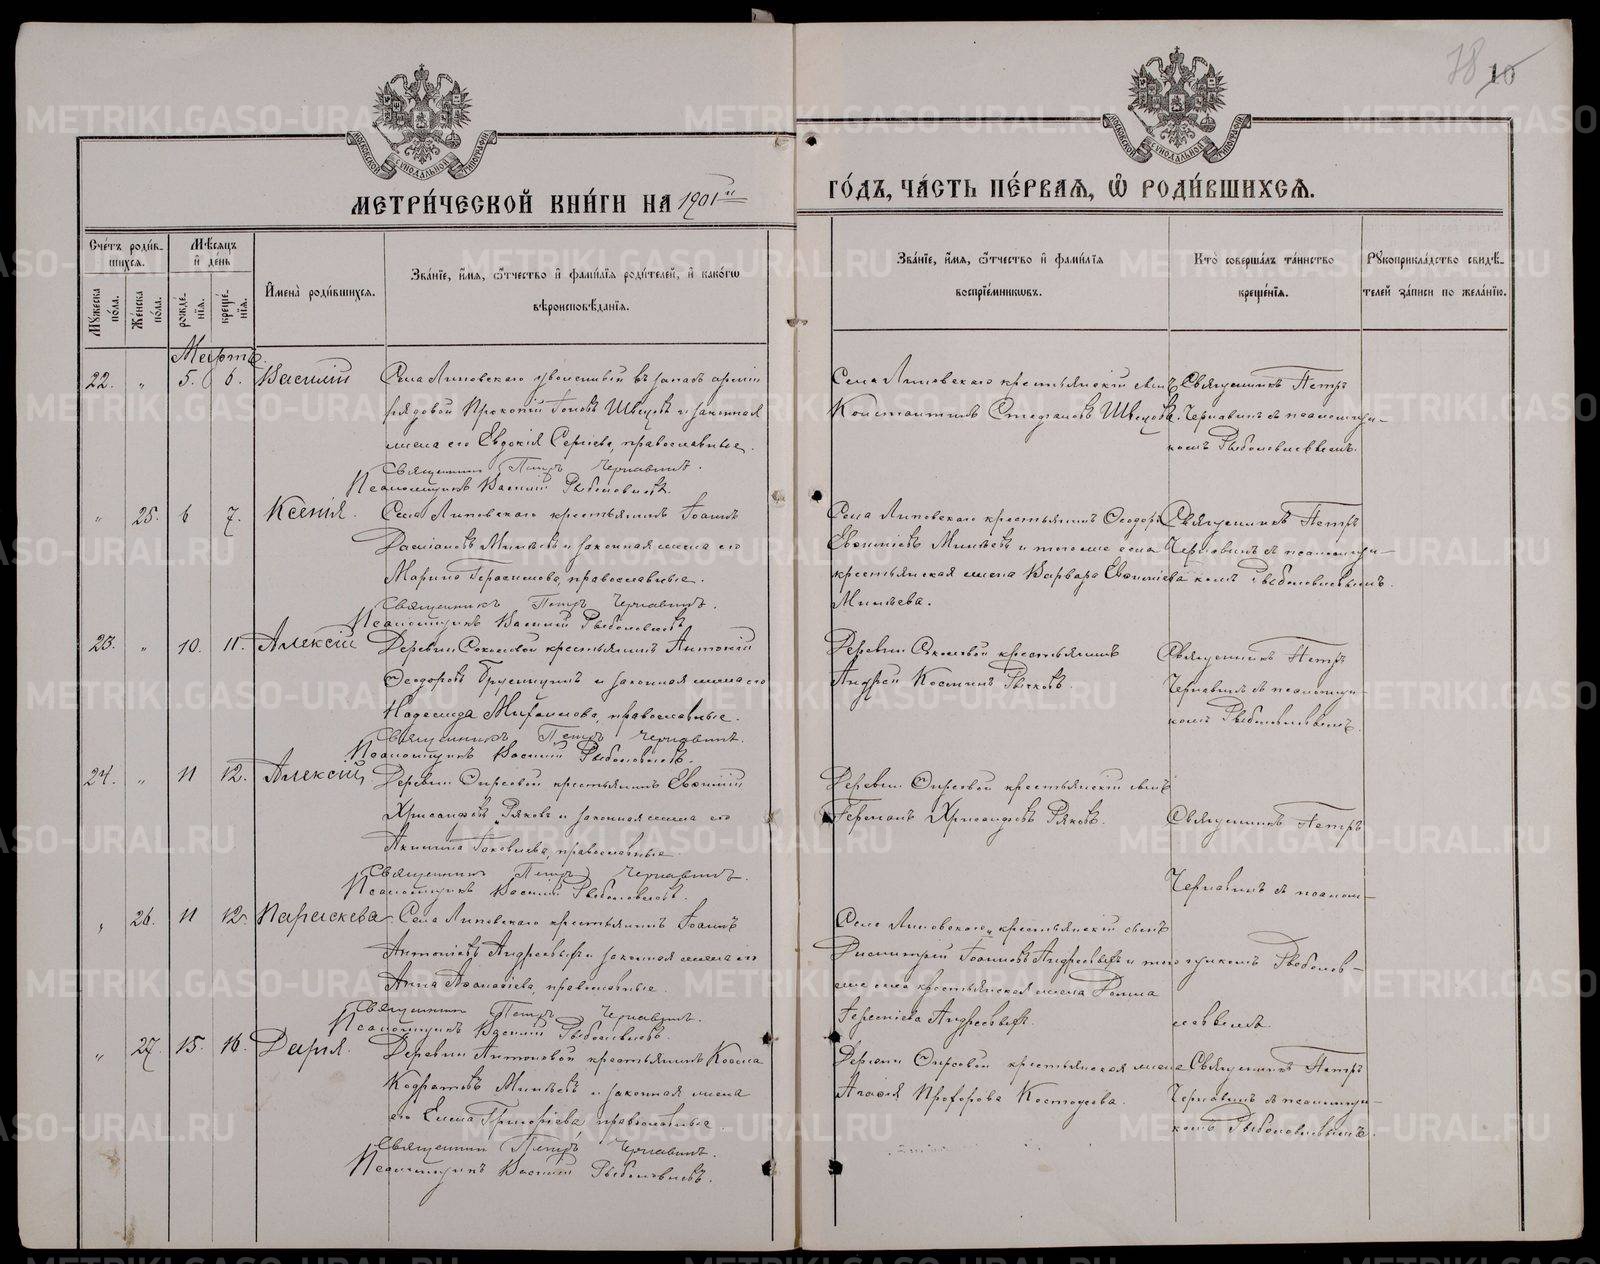 78 10
МЕТРИ́ЧЕСКОЙ КНИ́ГИ НА 1901й
ГО́ДЪ, ЧА́СТЬ ПЕ́РВАѦ, Ѡ҆ РОДИ́ВШИХСѦ.
Сче́тъ роди́в-
шихсѧ.
Мꙋжеска по́ла.
Же́нска по́ла.
Мѣ́сѧцъ
и҆ де́нь
рожде́-
нїѧ.
креще́-
нїѧ.
И҆мена̀ роди́вшихсѧ.
Зва́нїе, и҆́мѧ, ѻ҆́тчество и҆ фами́лїѧ роди́телей, и҆ како́гѡ
вѣроисповѣ́данїѧ.
Зва́нїе, и҆́мѧ, ѻ҆́тчество и҆ фами́лїѧ
воспрїе́мникѡвъ.
Кто̀ соверша́лъ та́инство
креще́нїѧ.
Рꙋкоприкла́дство свидѣ́-
телей за́писи по жела́нїю.
Мартъ.
22. „ 5. 6. Василій
Села Липовскаго уволенный въ запасъ арміи
рядовой Прокопій Швецовъ и законная
жена его Евдокія Сергіева, православные.
Священникъ Петръ Чернавинъ.
Псаломщикъ Василій Рыболовлевъ.
Села Липовскаго крестьянскій сынъ
Константинъ Стефановъ Швецовъ.
Священникъ Петръ
Чернавинъ съ псаломщи-
комъ Рыболовлевымъ.
„ 25. 6 7. Ксенія.
Села Липовскаго крестьянинъ Іоаннъ
Даміановъ Минѣевъ и законная жена его
Марина Герасимова, православные.
Священникъ Петръ Чернавинъ.
Псаломщикъ Василій Рыболовлевъ
Села Липовскаго крестьянинъ Ѳеодоръ
Евѳиміевъ Минѣевъ и того же села
крестьянская жена Варвара Евѳиміева
Минѣева.
Священникъ Петръ
Чернавинъ съ псаломщи-
комъ Рыболовлевымъ.
23. „ 10. 11. Алексій
Деревни Соколовой крестьянинъ Антоній
Ѳеодоровъ Брусницинъ и законная жена его
Надежда Михаилова, православные.
Священникъ Петръ Чернавинъ.
Псаломщикъ Василій Рыболовлевъ.
Деревни Соколовой крестьянинъ
Андрей Косминъ Рычковъ.
Священникъ Петръ
Чернавинъ съ псаломщи-
комъ Рыболовлевымъ.
24. „ 11 12. Алексій,
Деревни крестьянинъ Евѳимій
Хрисанѳовъ Ряковъ и законная жена его
Акилина Іаковлева, православные.
Священникъ Петръ Чернавинъ.
Псаломщикъ Василій Рыболовлевъ.
Деревни крестьянскій сынъ
Германъ Хрисанѳовъ Ряковъ.
Священникъ Петръ
Чернавинъ съ псалом-
„ 26. 11 12. Параскева
Села Липовскаго крестьянинъ Іоаннъ
Антоніевъ Андреевыхъ и законная жена его
Анна Аѳанасіева, православные.
Священникъ Петръ Чернавинъ.
Псаломщикъ Василій Рыболовлевъ.
Села Липовского крестьянскій сынъ
Димитрій Іоанновъ Андреевыхъ и того
же села крестьянская жена
Андреевыхъ.
щикомъ Рыболов-
левымъ.
„ 27. 15. 16. Дарія.
Деревни Антоновой крестьянинъ Косма
Кодратовъ Минѣевъ и законная жена
его Елена Григоріева, православные.
Священникъ Петръ Чернавинъ.
Псаломщикъ Василій Рыболовлевъ.
Деревни крестьянская жена
Агаѳія Прохорова Костоусова.
Священникъ Петръ
Чернавинъ съ псаломщи-
комъ Рыболовлевымъ.
METRIKI.GASO-URAL.RU